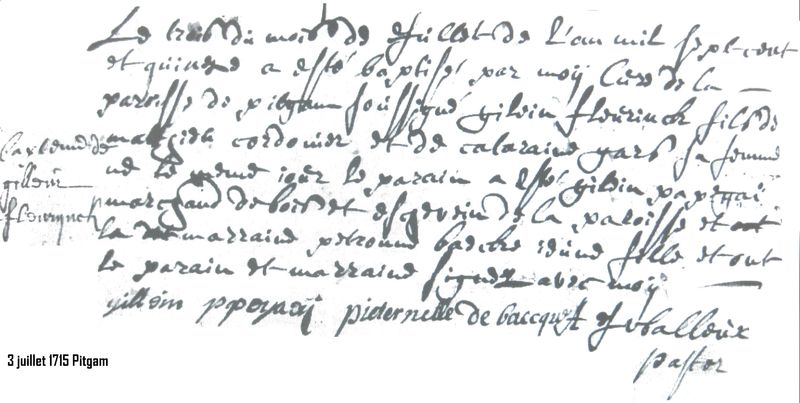 Le trois du mois de Juillet de L'an mil sept cent
et quinze a esté baptisé par moÿ Curé de la
paroisse de pitgam soussigné gilein fleurinck fils de
cordonier et de gars sa femme
né le meme iour le parain a esté gilein papegaÿ
marchand de bois et eschevein de la paroisse et
la marraine petronne ieune fille et ont
le parain et marraine signé avec moÿ
gillein
fleurinck
pieternelle de bacquer J balleux
pastor
3 juillet 1715 Pitgam